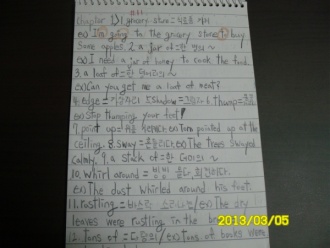 Chapter 13 grocery store=식료품 가게
ex) I'm going to the grocery store to buy
some apples. 2. a jar of=한 병의 ~
ex) I need a jar of honey to cook the food.
3. a loaf of=한 덩어리의~
ex) Can you get me a loaf of meat?
4. edge=가장자리 5. shadow=그림자 6. thump=
ex) Stop thumping your feet!
7. point up= ex) Tom pointed up at the
ceiling. 8. sway= ex) The trees swayed
calmly. 9. a stack of=한 더미의 ~
10. whirl around=빙빙 돌다,
ex) The dust whirled around his feet.
11. rustling=바스락 ex) The dry
leaves were rustling in the
12. tons of= ex) tons of books were
2013/03/05